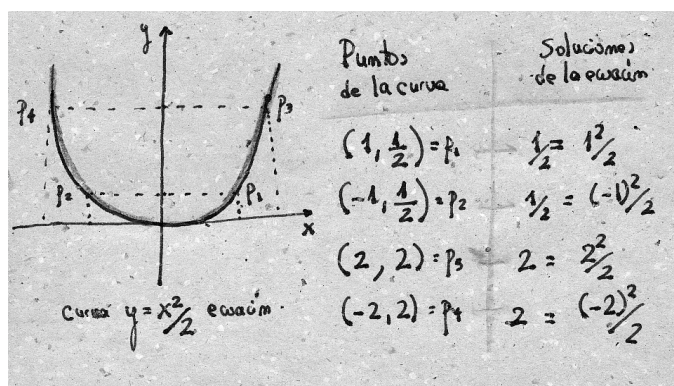 y
P4
P3
P2
P1
x
curva y = x²/2 ecuación.
Puntos
de la curva
Soluciones
de la ecuación
(1, 1/2) = P1
1/2 = 1²/2
(-1, 1/2) = P2
1/2 = (-1)²/2
(2, 2) = P3
2 = 2²/2
(-2, 2) = P4
2 = (-2)²/2